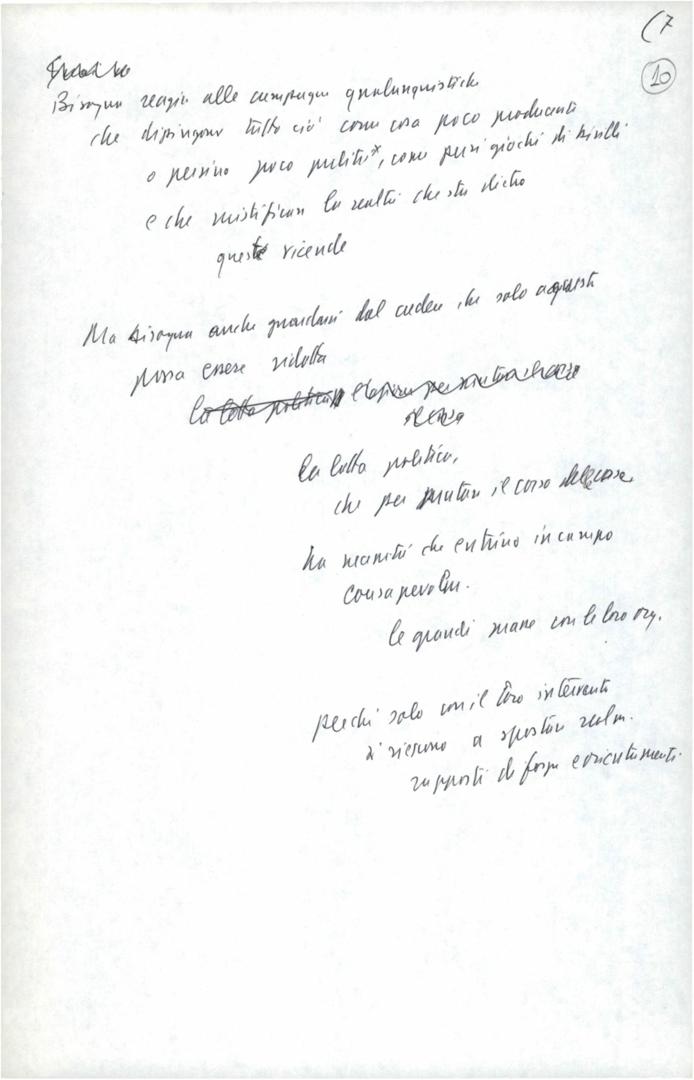 (7
10
Bisogna reagire alle campagne qualunquistiche
che dipingono tutto ciò come cosa poco producente
o persino poco pulita*, come puri giochi di birilli
e che mistificano la realtà che sta dietro
queste vicende
Ma bisogna anche guardarsi dal credere che solo a questo
possa essere ridotta
la lotta politica
la lotta politica,
che per mutare il corso delle cose
ha necessità che entrino in campo
consapevolm.
le grandi masse con le loro org.
perché solo con il loro intervento
si riescono a spostare realm.
rapporti di forza e orientamenti.